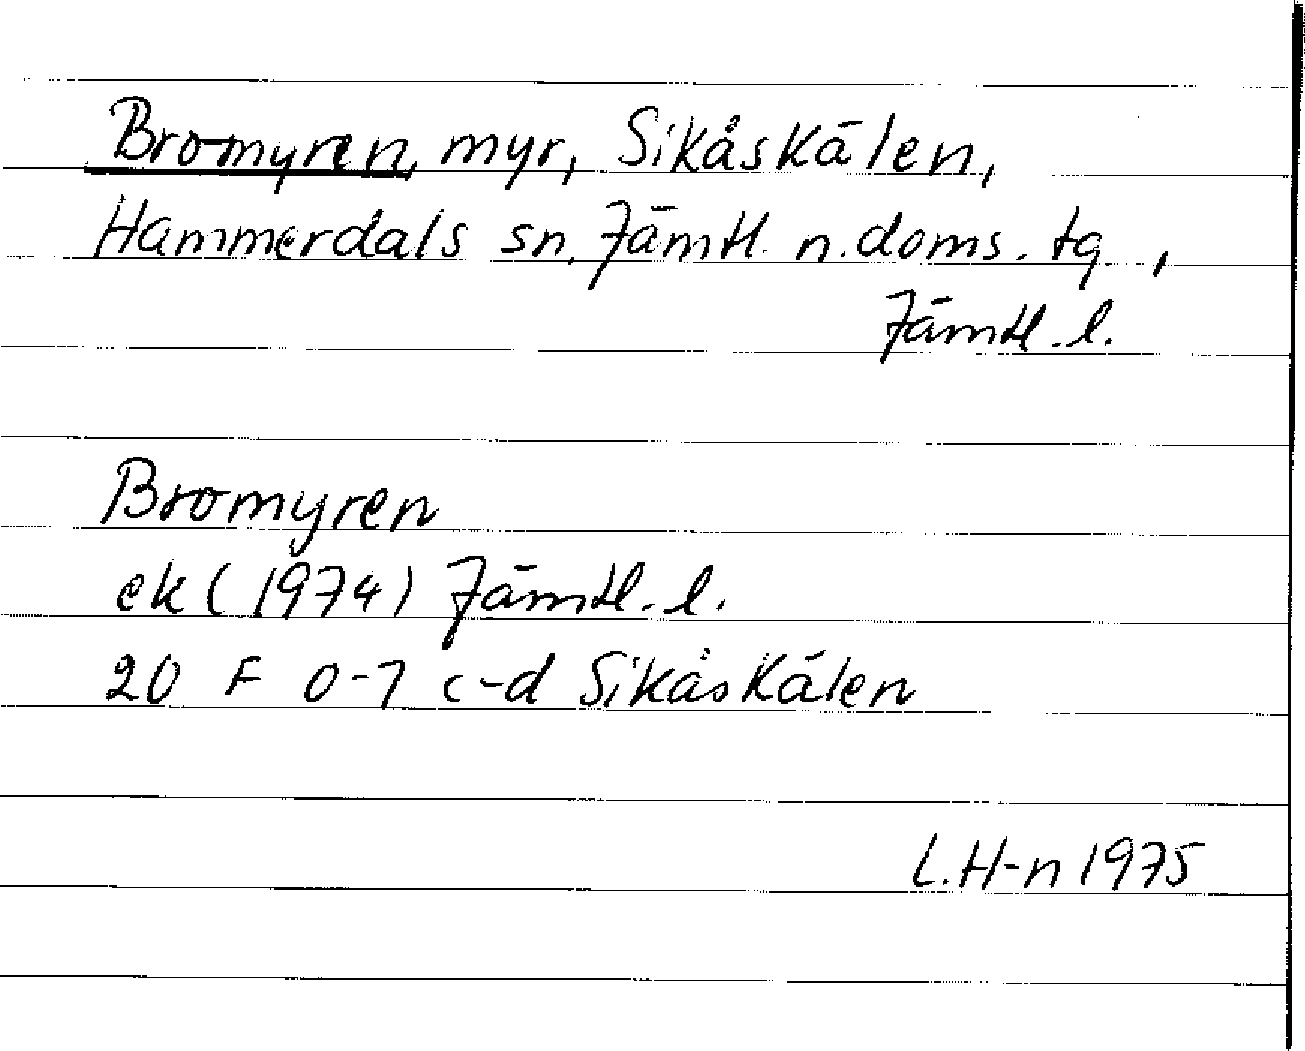 Bromyren, myr, Sikåskälen,
Hammerdals sn, Jämtl. n. doms. tg.,
Jämtl. l.
Bromyren
ek (1974) Jämtl. l.
20 F 0-1 c-d Sikåskälen
L.H-n 1975